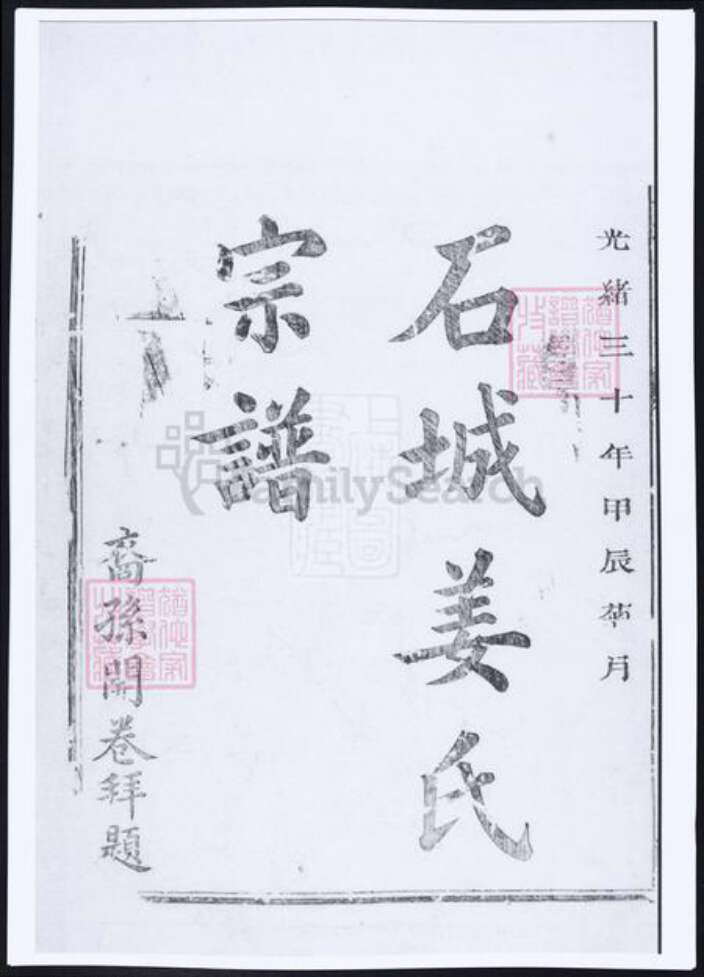 光緒三十年甲辰荢月
石城姜氏
宗譜
裔孫開卷拜題
FamilySearch